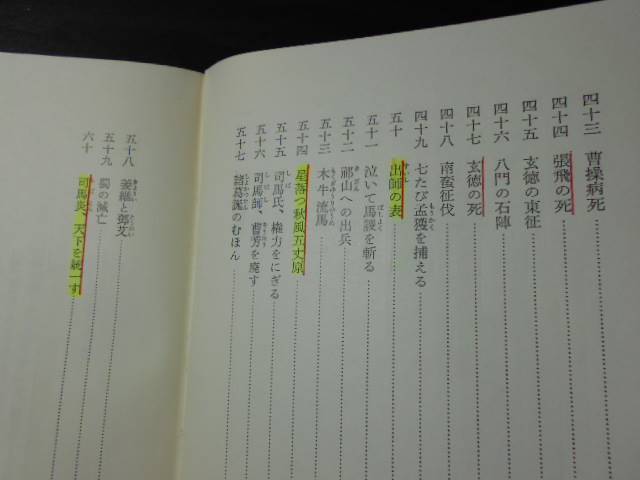 四十三 曹操病死
四十四 張飛の死
四十五 玄徳の東征
四十六 八門の石陣
四十七 玄徳の死
四十八 南蛮征伐
四十九 七たび孟獲を捕える
五十 出師の表
五十一 泣いて馬謖を斬る
五十二 祁山への出兵
五十三 木牛流馬
五十四 星落つ秋風五丈原
五十五 司馬氏、権力をにぎる
五十六 司馬師、曹芳を廃す
五十七 諸葛誕のむほん
五十八 姜維と鄧艾
五十九 蜀の滅亡
六十 司馬炎、天下を統一す